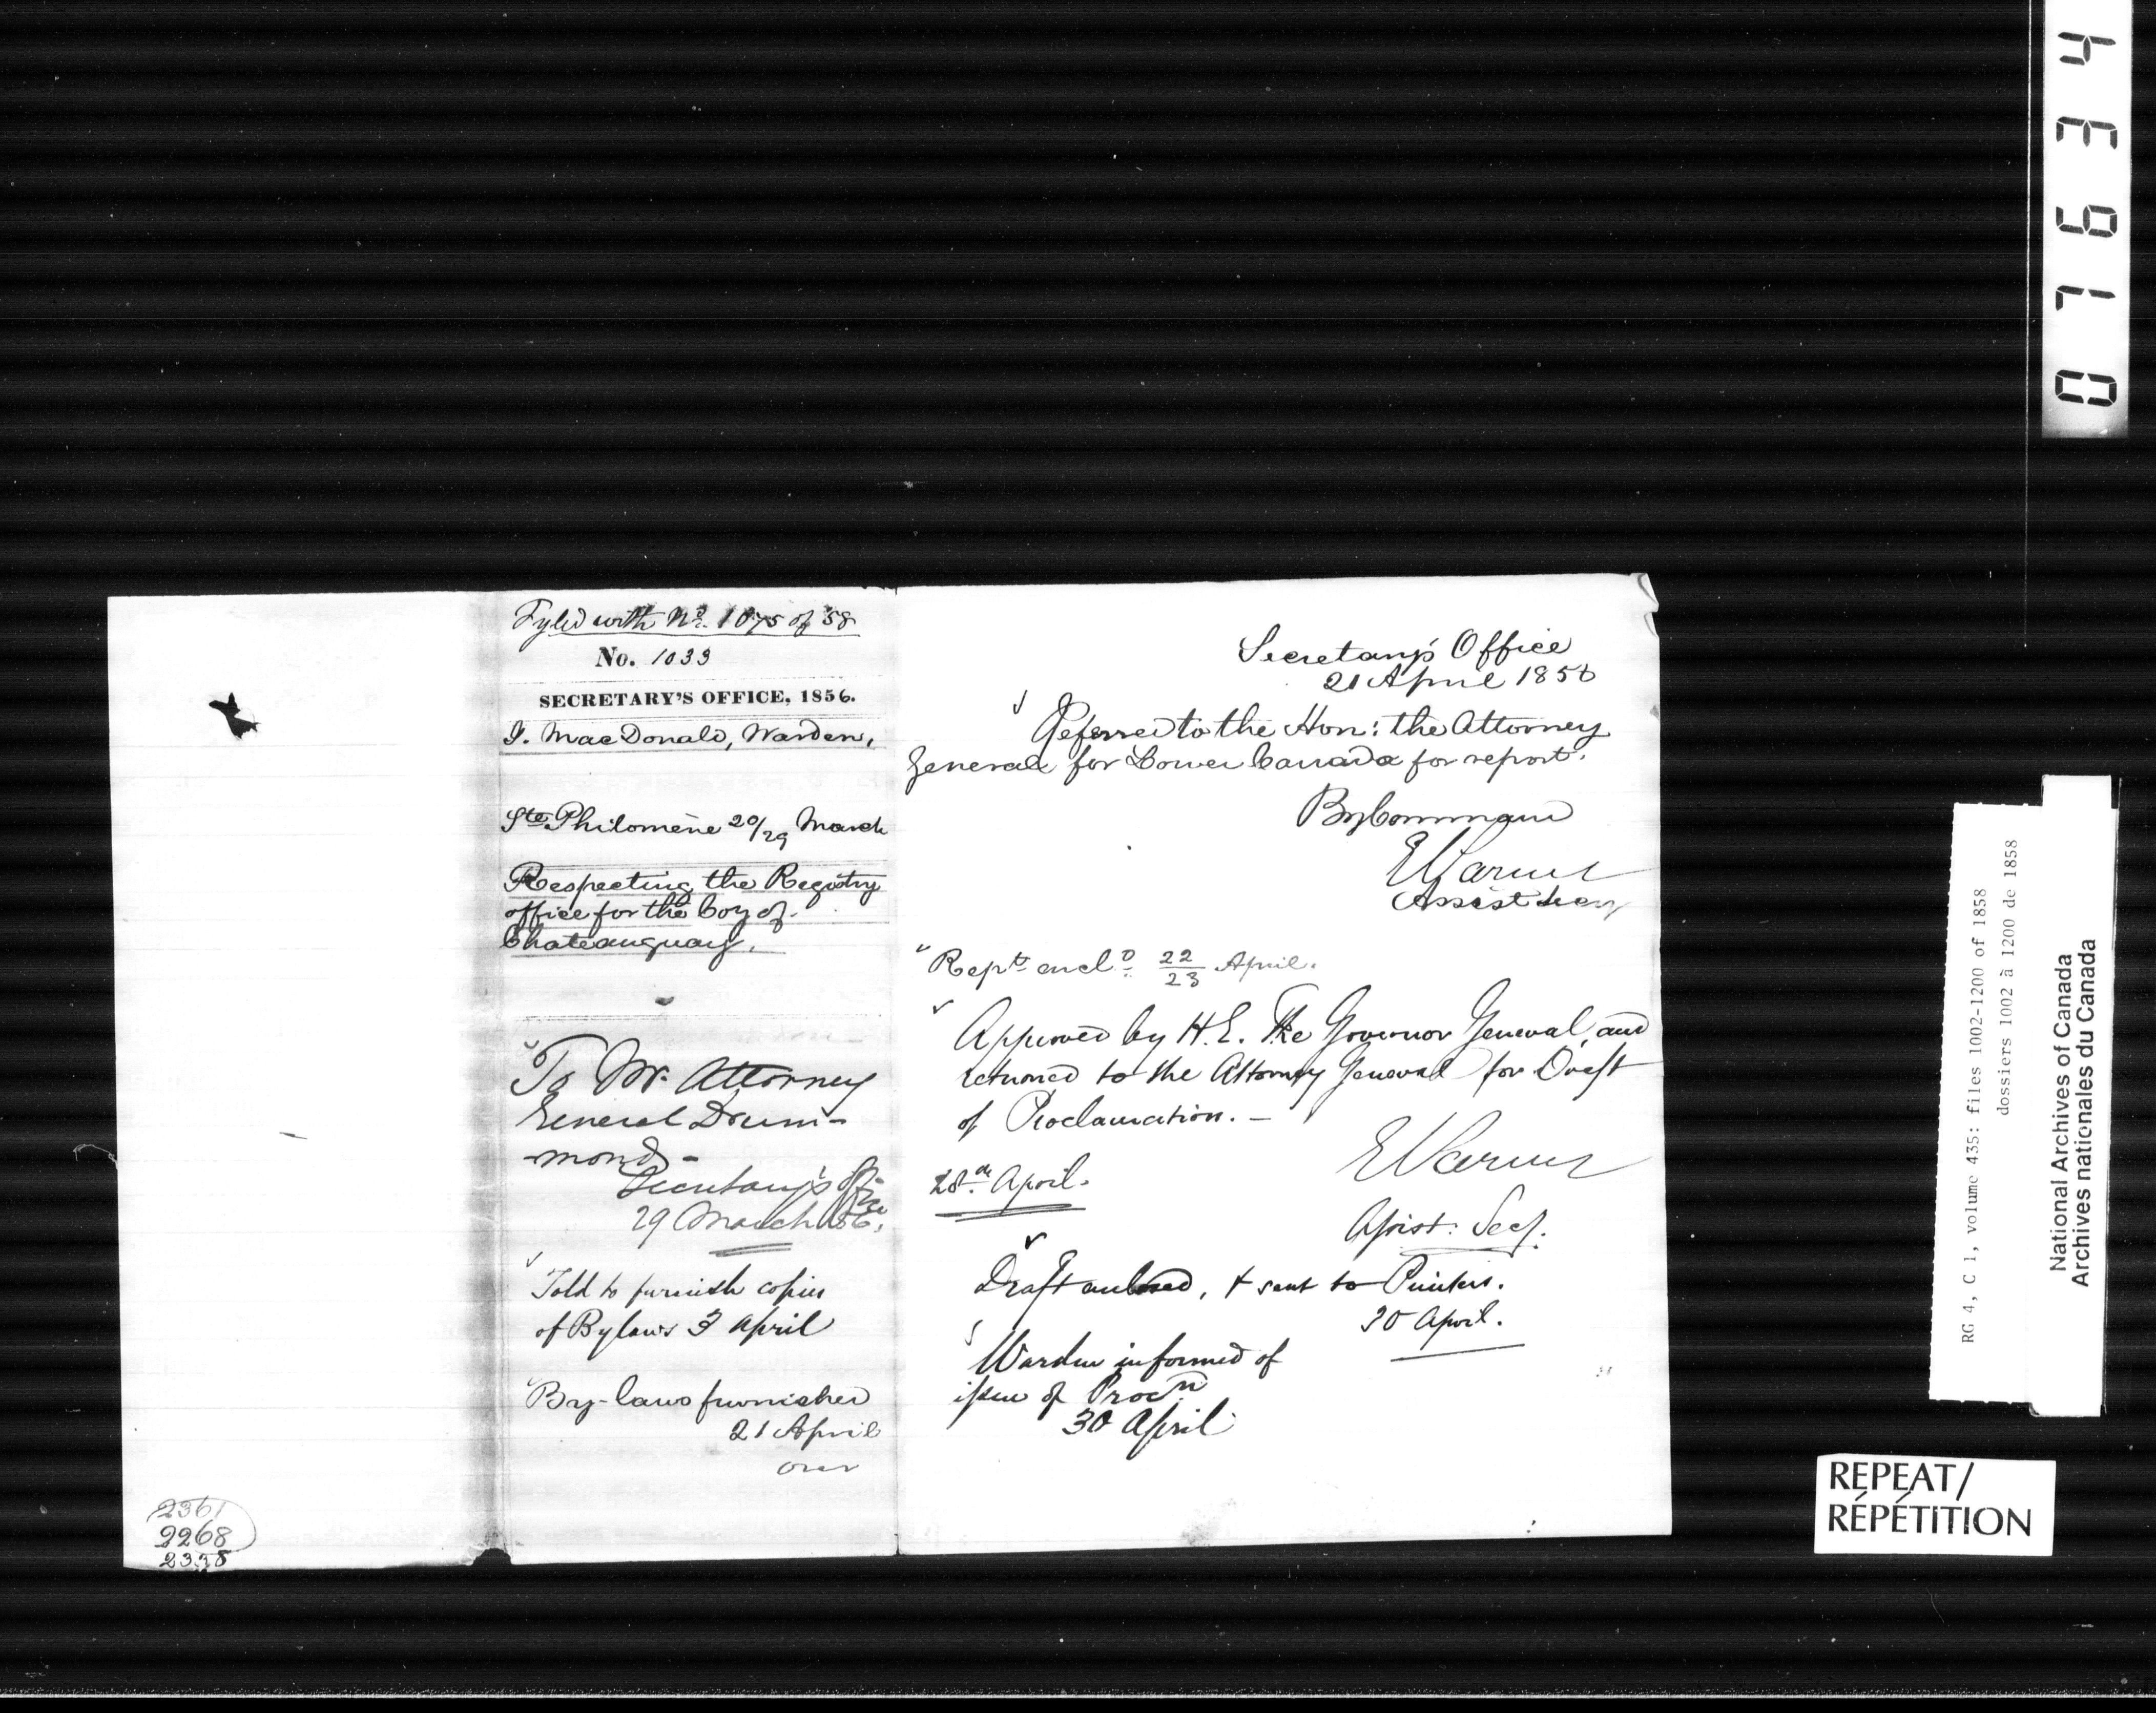 Fyled with No. 1075 of '58
No. 1033
SECRETARY'S OFFICE, 1856.
J. MacDonald, Warden,
Ste. Philomène 20/29 March
Respecting the Registry
office for the Coy of
Chateauguay.
To Mr. Attorney
General Drum-
mond -
Secretary's Office
29 March 1856.
Told to furnish copies
of Bylaws 3 April
By-laws furnished
21 April
over
2361
2268
2335
Secretary's Office
21 April 1856
Referred to the Hon: the Attorney
General for Lower Canada for report.
By Command
E Parent
Assist Secy
Rept. encld. 22/23 April.
Approved by H. E. The Governor General, and
returned to the Attorney General for Draft
of Proclamation. —
E Parent
28th. April.
Assist: Secy.
Draft enclosed, & sent to Printers.
30 April.
Warden informed of
issue of Procn
30 April
07634
RG 4, C 1, volume 435: files 1002-1200 of 1858
dossiers 1002 à 1200 de 1858
National Archives of Canada
Archives nationales du Canada
REPEAT/
RÉPÉTITION